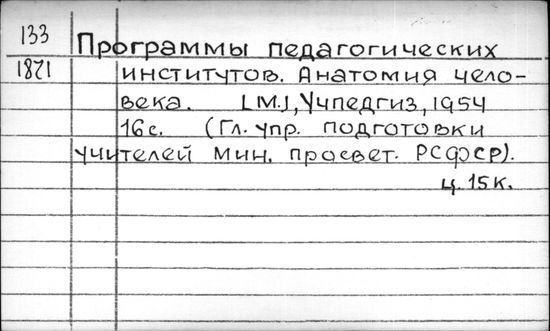 133
Программы педагогических
1871
институтов. Анатомия чело-
века. [М.], Учпедгиз, 1954
16 с. (Гл. упр. подготовки
учителей Мин. просвет. РСФСР).
ц. 15 к.